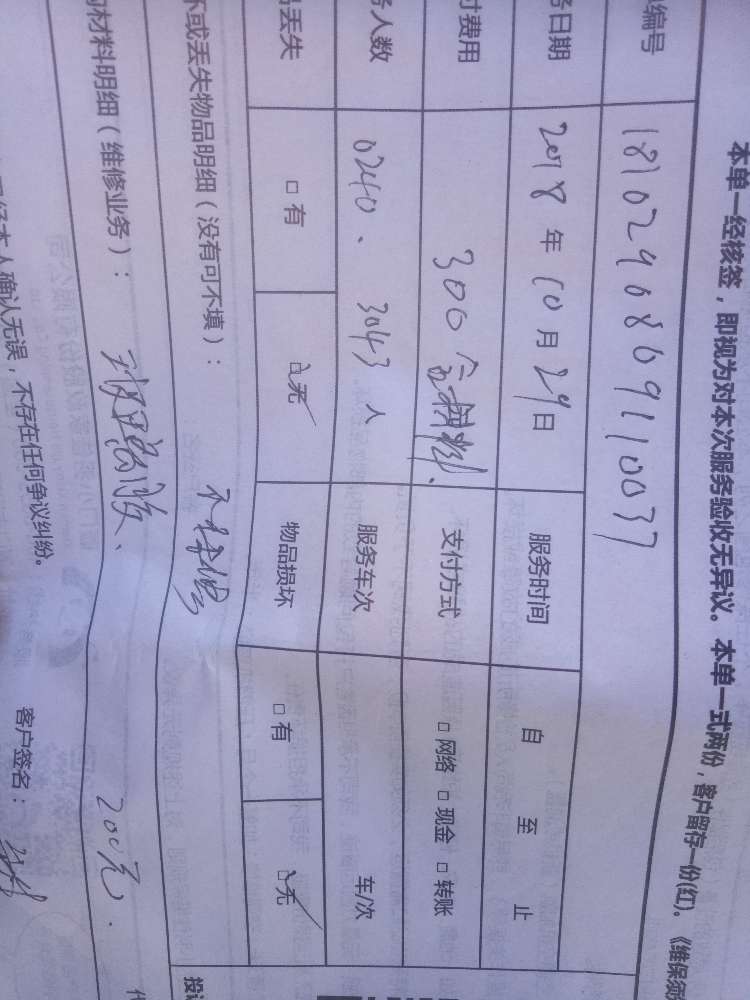 本单一经核签，即视为对本次服务验收无异议。本单一式两份，客户留存一份(红)。《维保须
编号 1810290869110037
日期 2018 年 10 月 29 日 服务时间 自 至 止
费用 300 支付方式 □ 网络 □ 现金 □ 转账
人数 0240、3043 人 服务车次 车/次
丢失 □ 有 □ 无 物品损坏 □ 有 □ 无
坏或丢失物品明细（没有可不填）：
材料明细（维修业务）： 玻璃胶、 200元.
本人确认无误，不存在任何争议纠纷。 客户签名：
投